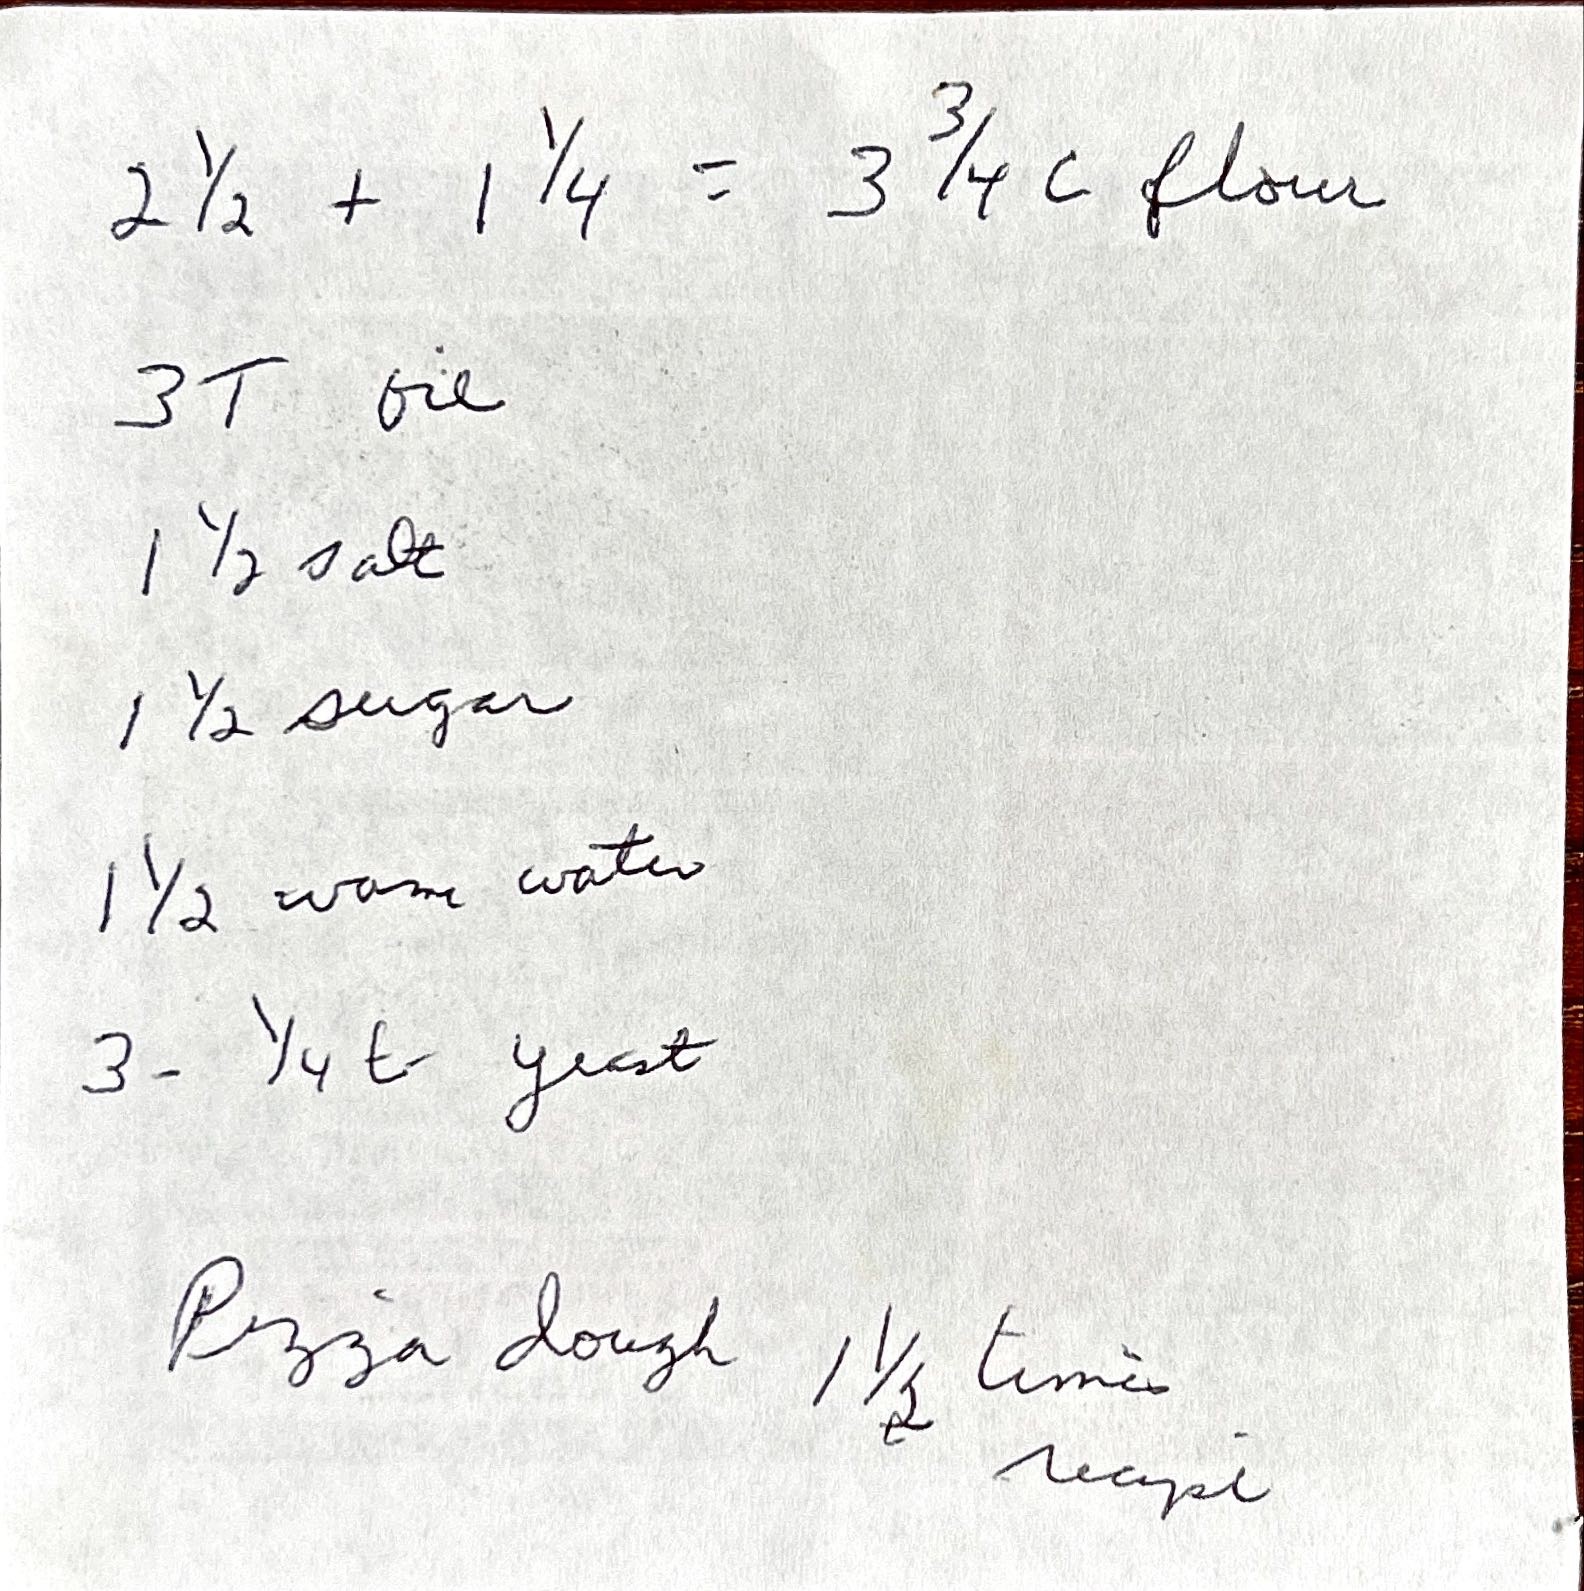 2 1/2 + 1 1/4 = 3 3/4 c flour
3 T oil
1 1/2 salt
1 1/2 sugar
1 1/2 warm water
3 - 1/4 t yeast
Pizza dough 1 1/2 times
recipe